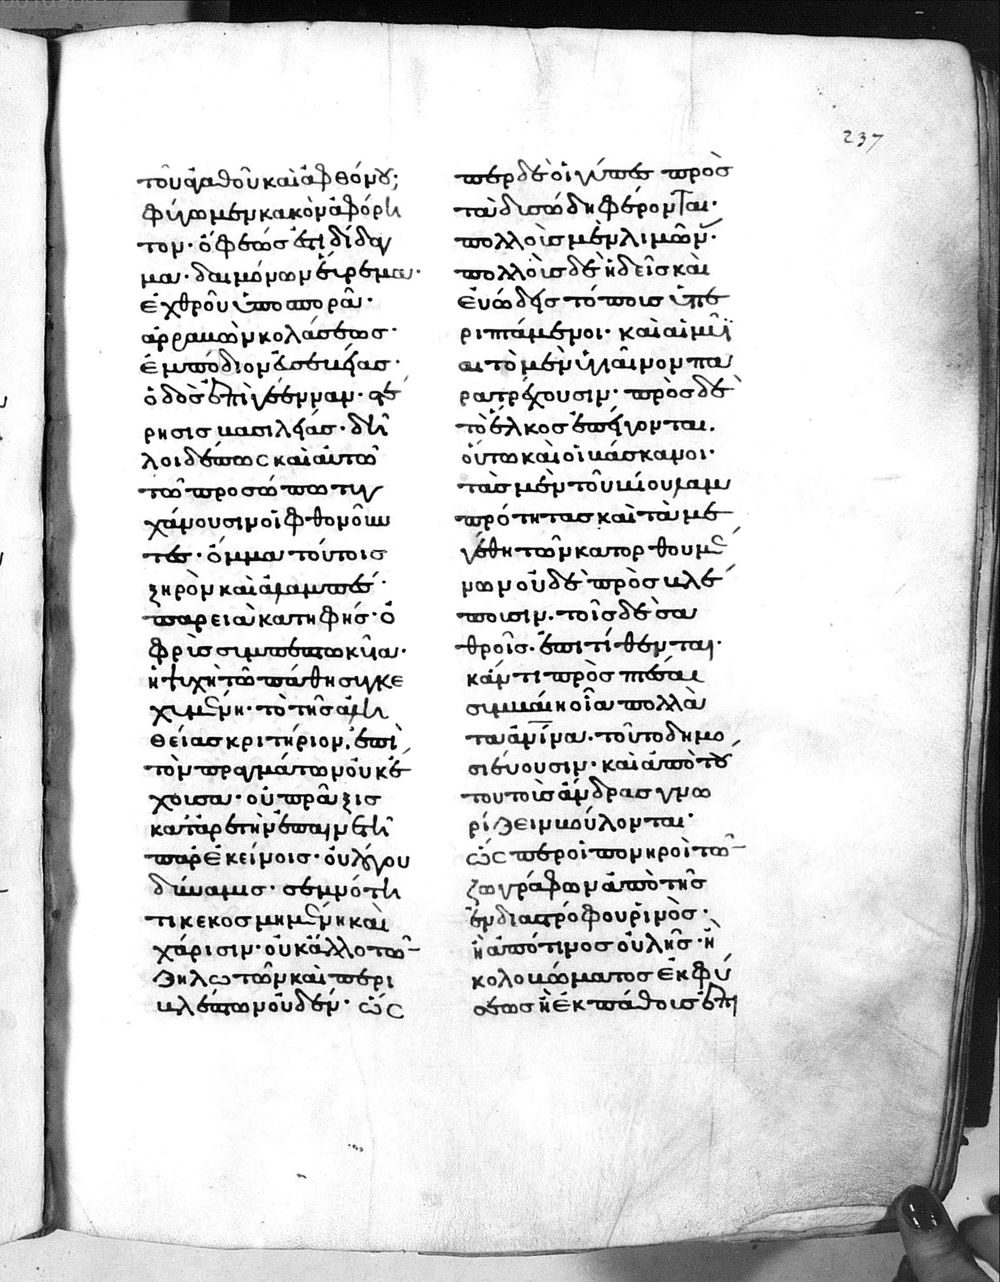 237
τοῦ ἀγαθοῦ καὶ ἀφθόνου;
φύγωμεν κακὸν ἀφόρη
τον· ὄφεώς ἐστι δίδαγ
μα· δαιμόνων εὕρεμα·
ἐχθροῦ ἐπισπορά·
ἀρραβὼν κολάσεως·
ἐμπόδιον εὐσεβείας·
ὁδὸς ἐπὶ γέενναν· στέ
ρησις βασιλείας· δῆ
λοι δέ πως καὶ αὐτῶ
τῶ προσώπω τυγ
χάνουσιν οἱ φθονοῦν
τες· ὄμμα τούτοις
ξηρὸν καὶ ἀλαμπές·
παρειὰ κατηφής· ὁ
φρὺς συμπεπτωκυῖα·
ἡ ψυχὴ τῶ πάθη συγκε
χυμένη· τὸ τῆς ἀλη
θείας κριτήριον, ἐπὶ
τῶν πραγμάτων οὐκ ἔ
χουσα· οὐ πρᾶξις
κατ' ἀρετὴν ἐπαινετὴ
παρ' ἐκείνοις· οὐ λόγου
δύναμις· σεμνότη
τι κεκοσμημένη καὶ
χάρισιν· οὐκ ἄλλο τῶν
ζηλωτῶν καὶ περι
βλέπτων οὐδέν· ὥσ
περ δὲ οἱ γύπες πρὸς
τὰ δυσώδη φέρονται·
πολλοὺς μὲν λιμῶν·
πολλοὺς δὲ ἡδεῖς καὶ
εὐώδεις τόπους ὑπε
ριπτάμενοι· καὶ αἱ μυῖ
αι τὸ μὲν ὑγιαῖνον πα
ρατρέχουσιν· πρὸς δὲ
τὸ ἕλκος ἐπείγονται.
οὕτω καὶ οἱ βάσκανοι·
τὰς μὲν τοῦ βίου λαμ
πρότητας καὶ τὰ με
γέθη τῶν κατορθουμέ
νων οὐδὲ προσβλέ
πουσιν. τοῖς δὲ σα
θροῖς· ἐπιτίθενται·
κάν τι προσπταῖσαι
συμβαίη οἷα πολλὰ
τὰ ἀνθρώπινα· τοῦτο δημο
σιεύουσιν· καὶ ἀπὸ τού
του τοὺς ἄνδρας γνω
ρίζειν βούλονται·
ὥσπερ οἱ πονηροὶ τῶν
ζωγράφων ἀπὸ τῆς
ἐνδιαστρόφου ῥινὸς·
ἢ ἀπό τινος οὐλῆς· ἢ
κολοβώματος ἐκ φύ
σεως ἢ ἐκ πάθους ἐπι